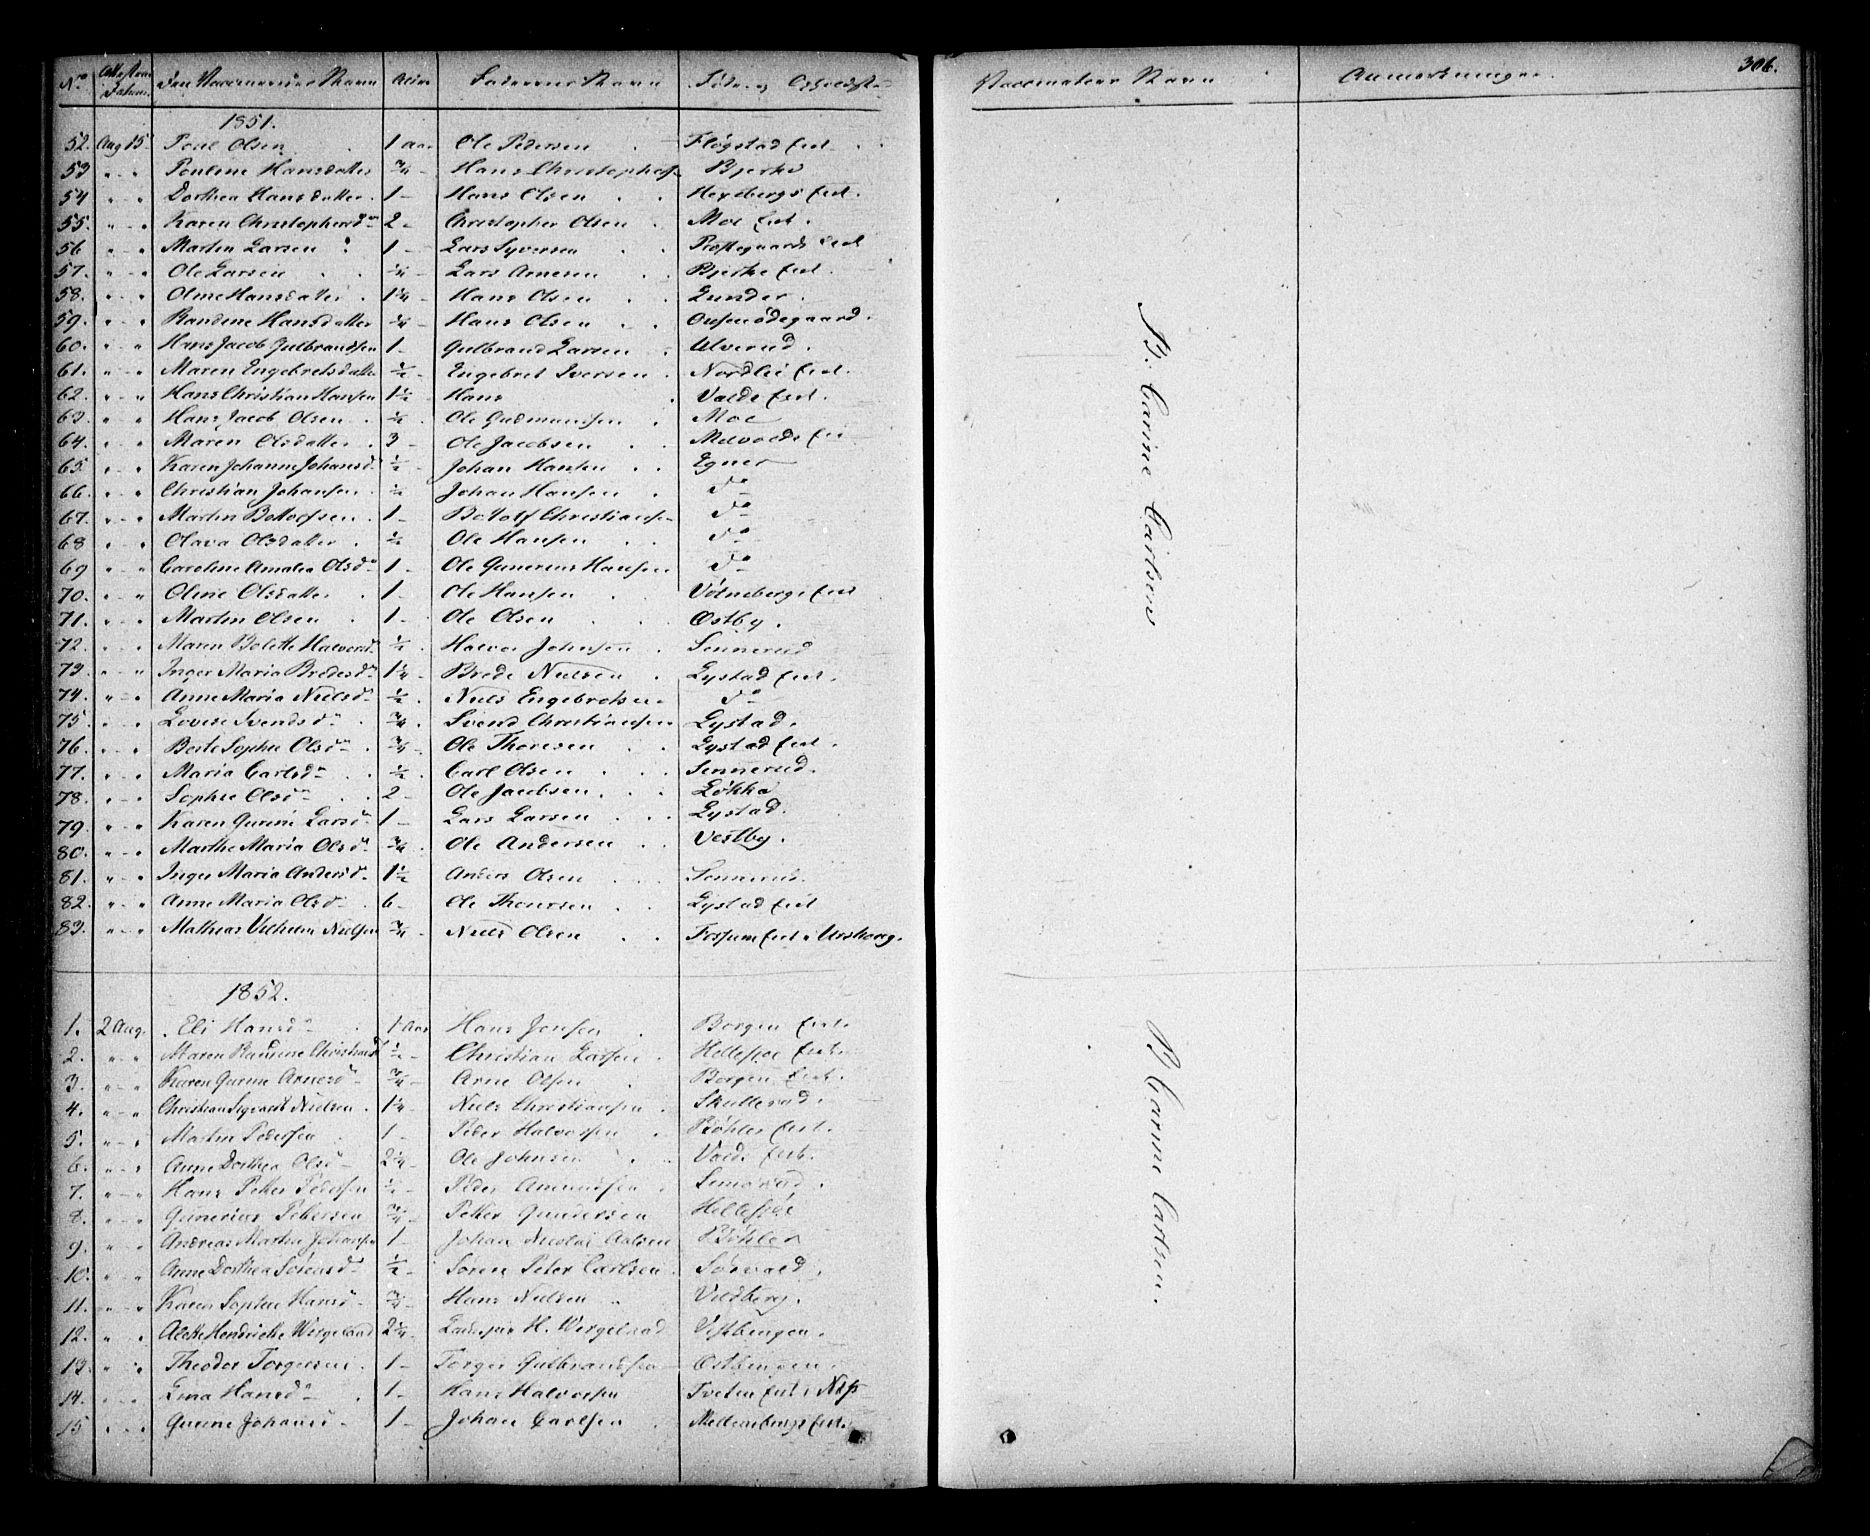 No Attestens Datum. Den Vaccineredes Navn Alder Faderens Navn Føde- og Opholdsste
1851.
52. Aug 15 Poul Olsen 1 Aar Ole Pedersen Fløgstad Eiet
53 " - " Pauline Hansdatter 3/4 - Hans Christophers Bjerke
54 " - " Dorthea Hansdatter. 1 - Hans Olsen Hexebergs Eiet.
55. " - " Karen Christophersdr 2 - Christopher Olsen Moe Eiet.
56 " - " Martin Larsen 1 - Lars Syversen Præstegaards Eiet
57. " - " Ole Larsen 1/4 - Lars Arnesen Bjerke Eiet.
58. " - " Oline Hansdatter 1 1/4 - Hans Olsen Lunder.
59. " - " Randine Hansdatter 1/4 - Hans Olsen Ousenødegaard.
60. " - " Hans Jacob Gulbrandsen 1 - Gulbrand Larsen Ulverud.
61. " - " Maren Engebretsdatter 1/2 - Engebret Iversen Nordlie Eiet.
62. " - " Hans Christian Hansen 1 1/2 - Hans Valde Eiet.
63. " - " Hans Jacob Olsen 1/2 Ole Gudmundsen Moe
64. " - " Maren Olsdatter 3 - Ole Jacobsen Melvolds Eie
65. " - " Karen Johanne Johansd 1/2 Johan Hansen Egner
66. " - " Christian Johansen 1/2 Johan Hansen Do
67. " - " Martin Bottolfsen 1 - Bottolf Christiansen Do
68 " - " Olava Olsdatter 1/2 Ole Hansen Do
69 " - " Caroline Amalia Olsdr 1 - Ole Gunerius Hansen Do
70. " - " Oline Olsdatter 1 - Ole Hansen Vølnebergs Eiet
71. " - " Martin Olsen 1 - Ole Olsen Østby.
72. " - " Maren Bolette Halvorsd 1/2 Halvor Johnsen Sennerud
73. " - " Inger Maria Bredesdr 1 1/4 - Brede Nielsen Lystad Eiet.
74. " - " Anne Maria Nielsdr 1/2 Niels Engebretsen Do
75. " - " Lovise Svendsdr 3/4 Svend Christiansen Lystad.
76. " - " Berte Sophie Olsdr 3/4 - Ole Thoresen Lystad Eiet.
77. " - " Maria Carlsdr 1/2 Carl Olsen Sennerud.
78. " - " Sophie Olsdr 2 - Ole Jacobsen Løkke
79. " - " Karen Gurine Larsdr 1 - Lars Larsen Lystad.
80. " - " Marthe Maria Olsdr 3/4 Ole Andersen Vestby.
81. " - " Inger Maria Andersdr 1 1/2 Anders Olsen Sennerud.
82. " - " Anne Maria Olsdr 6 - Ole Thoresen Lystad Eiet
83. " - " Mathias Vilhelm Nielsen 3/4 - Niels Olsen Fossum Eiet i Urskoug.
1852.
1. 2 Aug. Eli Hansdr 1 Aar Hans Jensen Borgen Eiet.
2. " - " Maren Randine Christiansd 1/2 - Christian Larsen Hellesøe Eiet.
3. " - " Karen Gurine Arnesdr 3/4 - Arne Olsen Borgen Eiet.
4. " - " Christian Sigvardt Nielsen 1 1/4 - Niels Christiansen Skullerud.
5. " - " Martin Pedersen 1 - Peder Halvorsen Bøhler Eiet.
6. " - " Anne Dorthea Olsdr 2 1/4 - Ole Johnsen Valde Eiet.
7. " - " Hans Petter Pedersen 1/2 - Peder Amundsen
8. " - " Gunerius Pettersen 3/4 - Petter Gundersen Hellesøe
9. " - " Andreas Martin Johansen 1 Johan Nicolai Olsen Bøhler
10. " - " Anne Dorthea Sørensdr 1/2 Søren Peter Carlsen Sørvald.
11. " - " Karen Sophie Hansdr 3/4 Hans Nielsen Veldberg.
12. " - " Alette Hendrikke Wergeland 2 1/4 H. Wergeland Vestbingen.
13. " " Theodor Torgersen 1 - Torger Gulbrandsen Østbingen.
14. " - " Lina Hansdr 1 - Hans Halvorsen Tveten Eiet i Næs
15 " - " Gurine Johansd 1 - Johan Carlsen Mellenbergs Eiet.
Vaccinateur Navn Anmærkninger. 306.
B. Carine Carlsen
B Carine Carlsen.